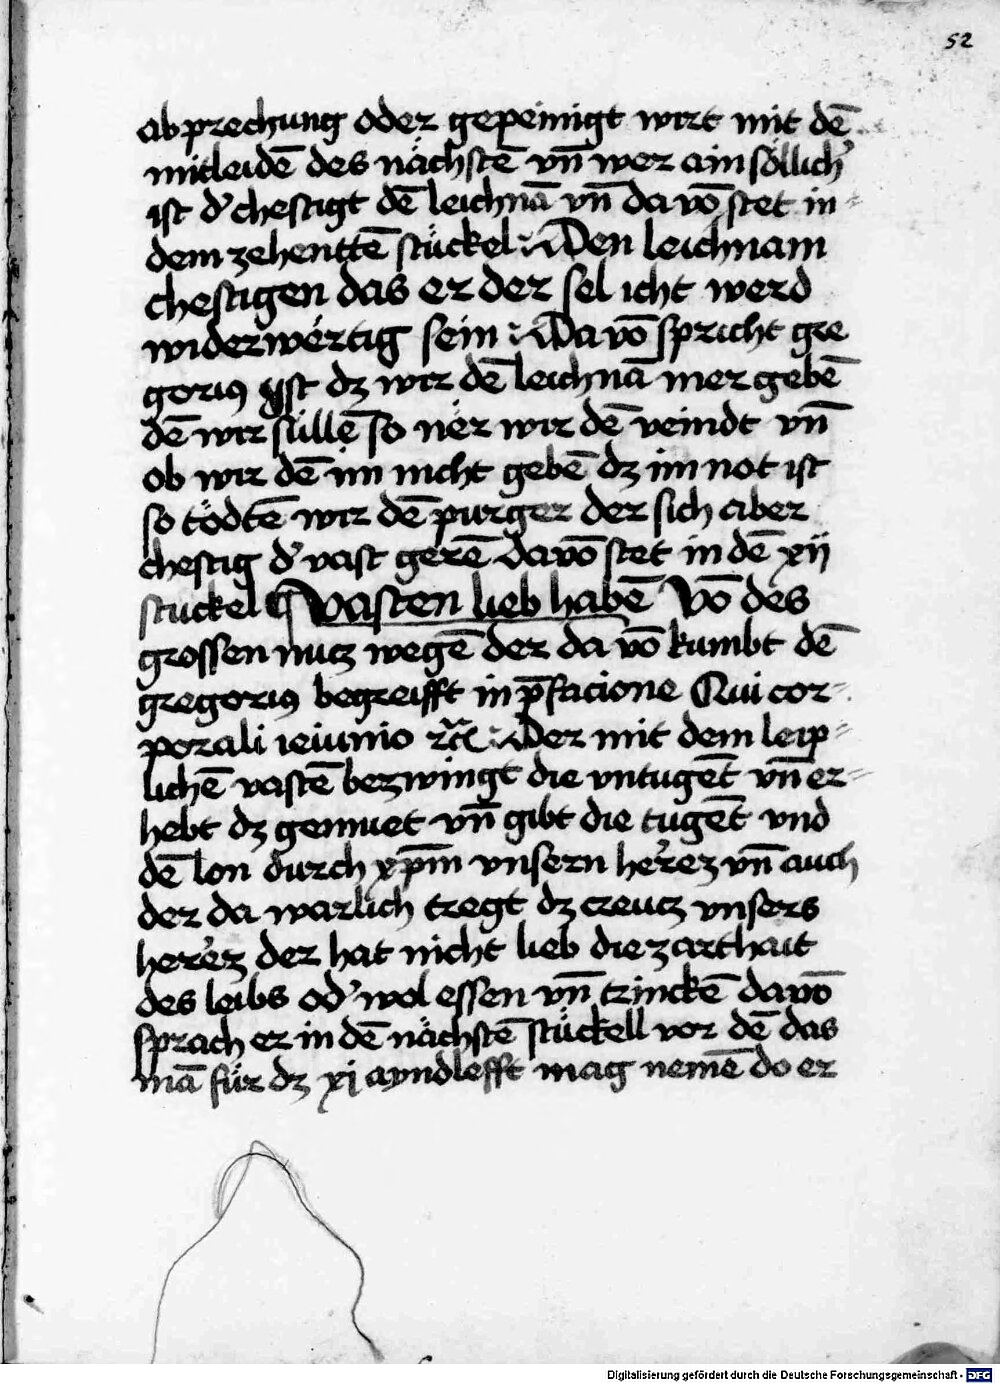 52
abprechung oder gepeinigt wirt mit dē
mitleidē des nächstē vn̄ wer ain söllich'
ist d' chestigt dē leichnā vn̄ da vō stet in-
dem zehenttē stückel Den leichnam
chestigen das er der sel icht werd
widerwërtig sein Da vō spricht gre
gorius ist dz wir dē leichnā mer gebē
dē wir süllē so nër wir dē veindt vn̄
ob wir dē im nicht gebē dz im not ist
so tödtē wir dē purger der sich aber
chestig d' vast gerē davō stet in dē xij
stuckel Vasten lieb habē Vō des
grossen nucz wegē der da vō kumbt dē
gregorius begreifft in p̄facione Qui cor-
porali ieiunio rc̄ Der mit dem leip-
lichē vastē bezwingt die vntugēt vn̄ er-
hebt dz gemuet vn̄ gibt die tugēt vnd
dē lon durch xp̄m vnsern herrēz vn̄ auch
der da warlich tregt dz creucz vnsers
herrēz der hat nicht lieb die zarthait
des leibs od' wol essen vn̄ trinckē davō
sprach er in dē nächstē stückell vor dē das
mā für dz xj ayndlefft mag nemē do er
Digitalisierung gefördert durch die Deutsche Forschungsgemeinschaft - DFG